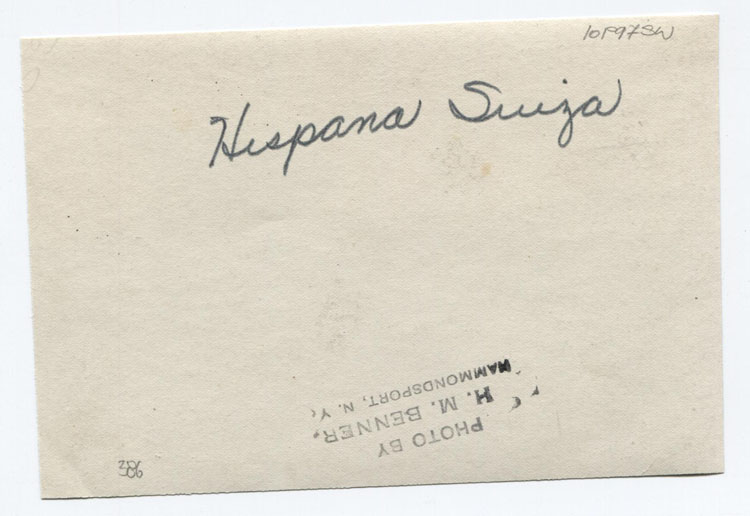 10P97SW
Hispana Suiza
PHOTO BY
H. M. BENNER.
HAMMONDSPORT, N. Y.
386